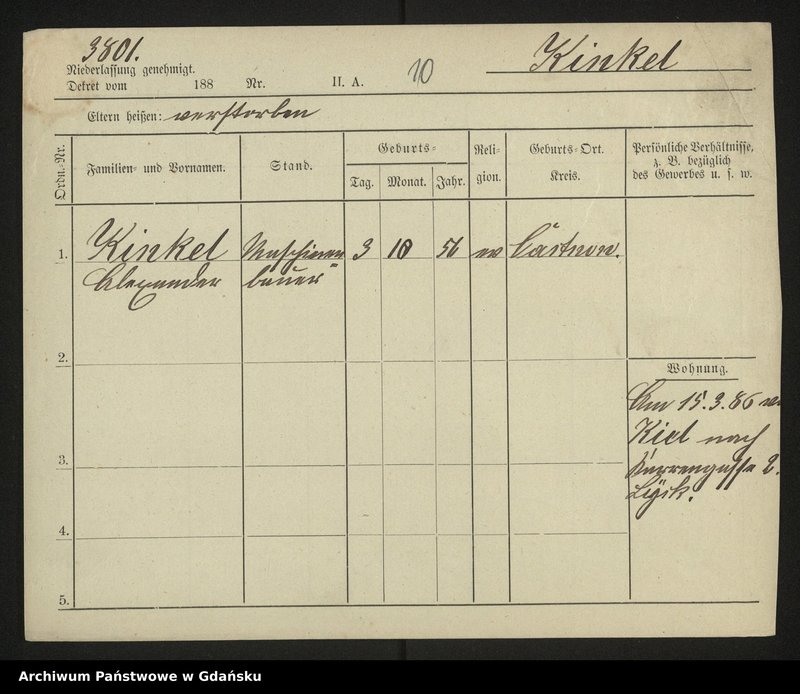 3801.
Kinkel
Niederlassung genehmigt.
Dekret vom 188 Nr. II. A. 10
Eltern heißen: verstorben
Ordn.-Nr.
Familien- und Vornamen.
Stand.
Geburts-
Tag. Monat. Jahr.
Reli-
gion.
Geburts-Ort.
Kreis.
Persönliche Verhältnisse,
z. B. bezüglich
des Gewerbes u. s. w.
1. Kinkel Maschinen 3 10 56 ev
Alexander bauer
2.
Wohnung.
Am 15.3.86 v
Kiel nach
2.
3.
4.
5.
Archiwum Państwowe w Gdańsku